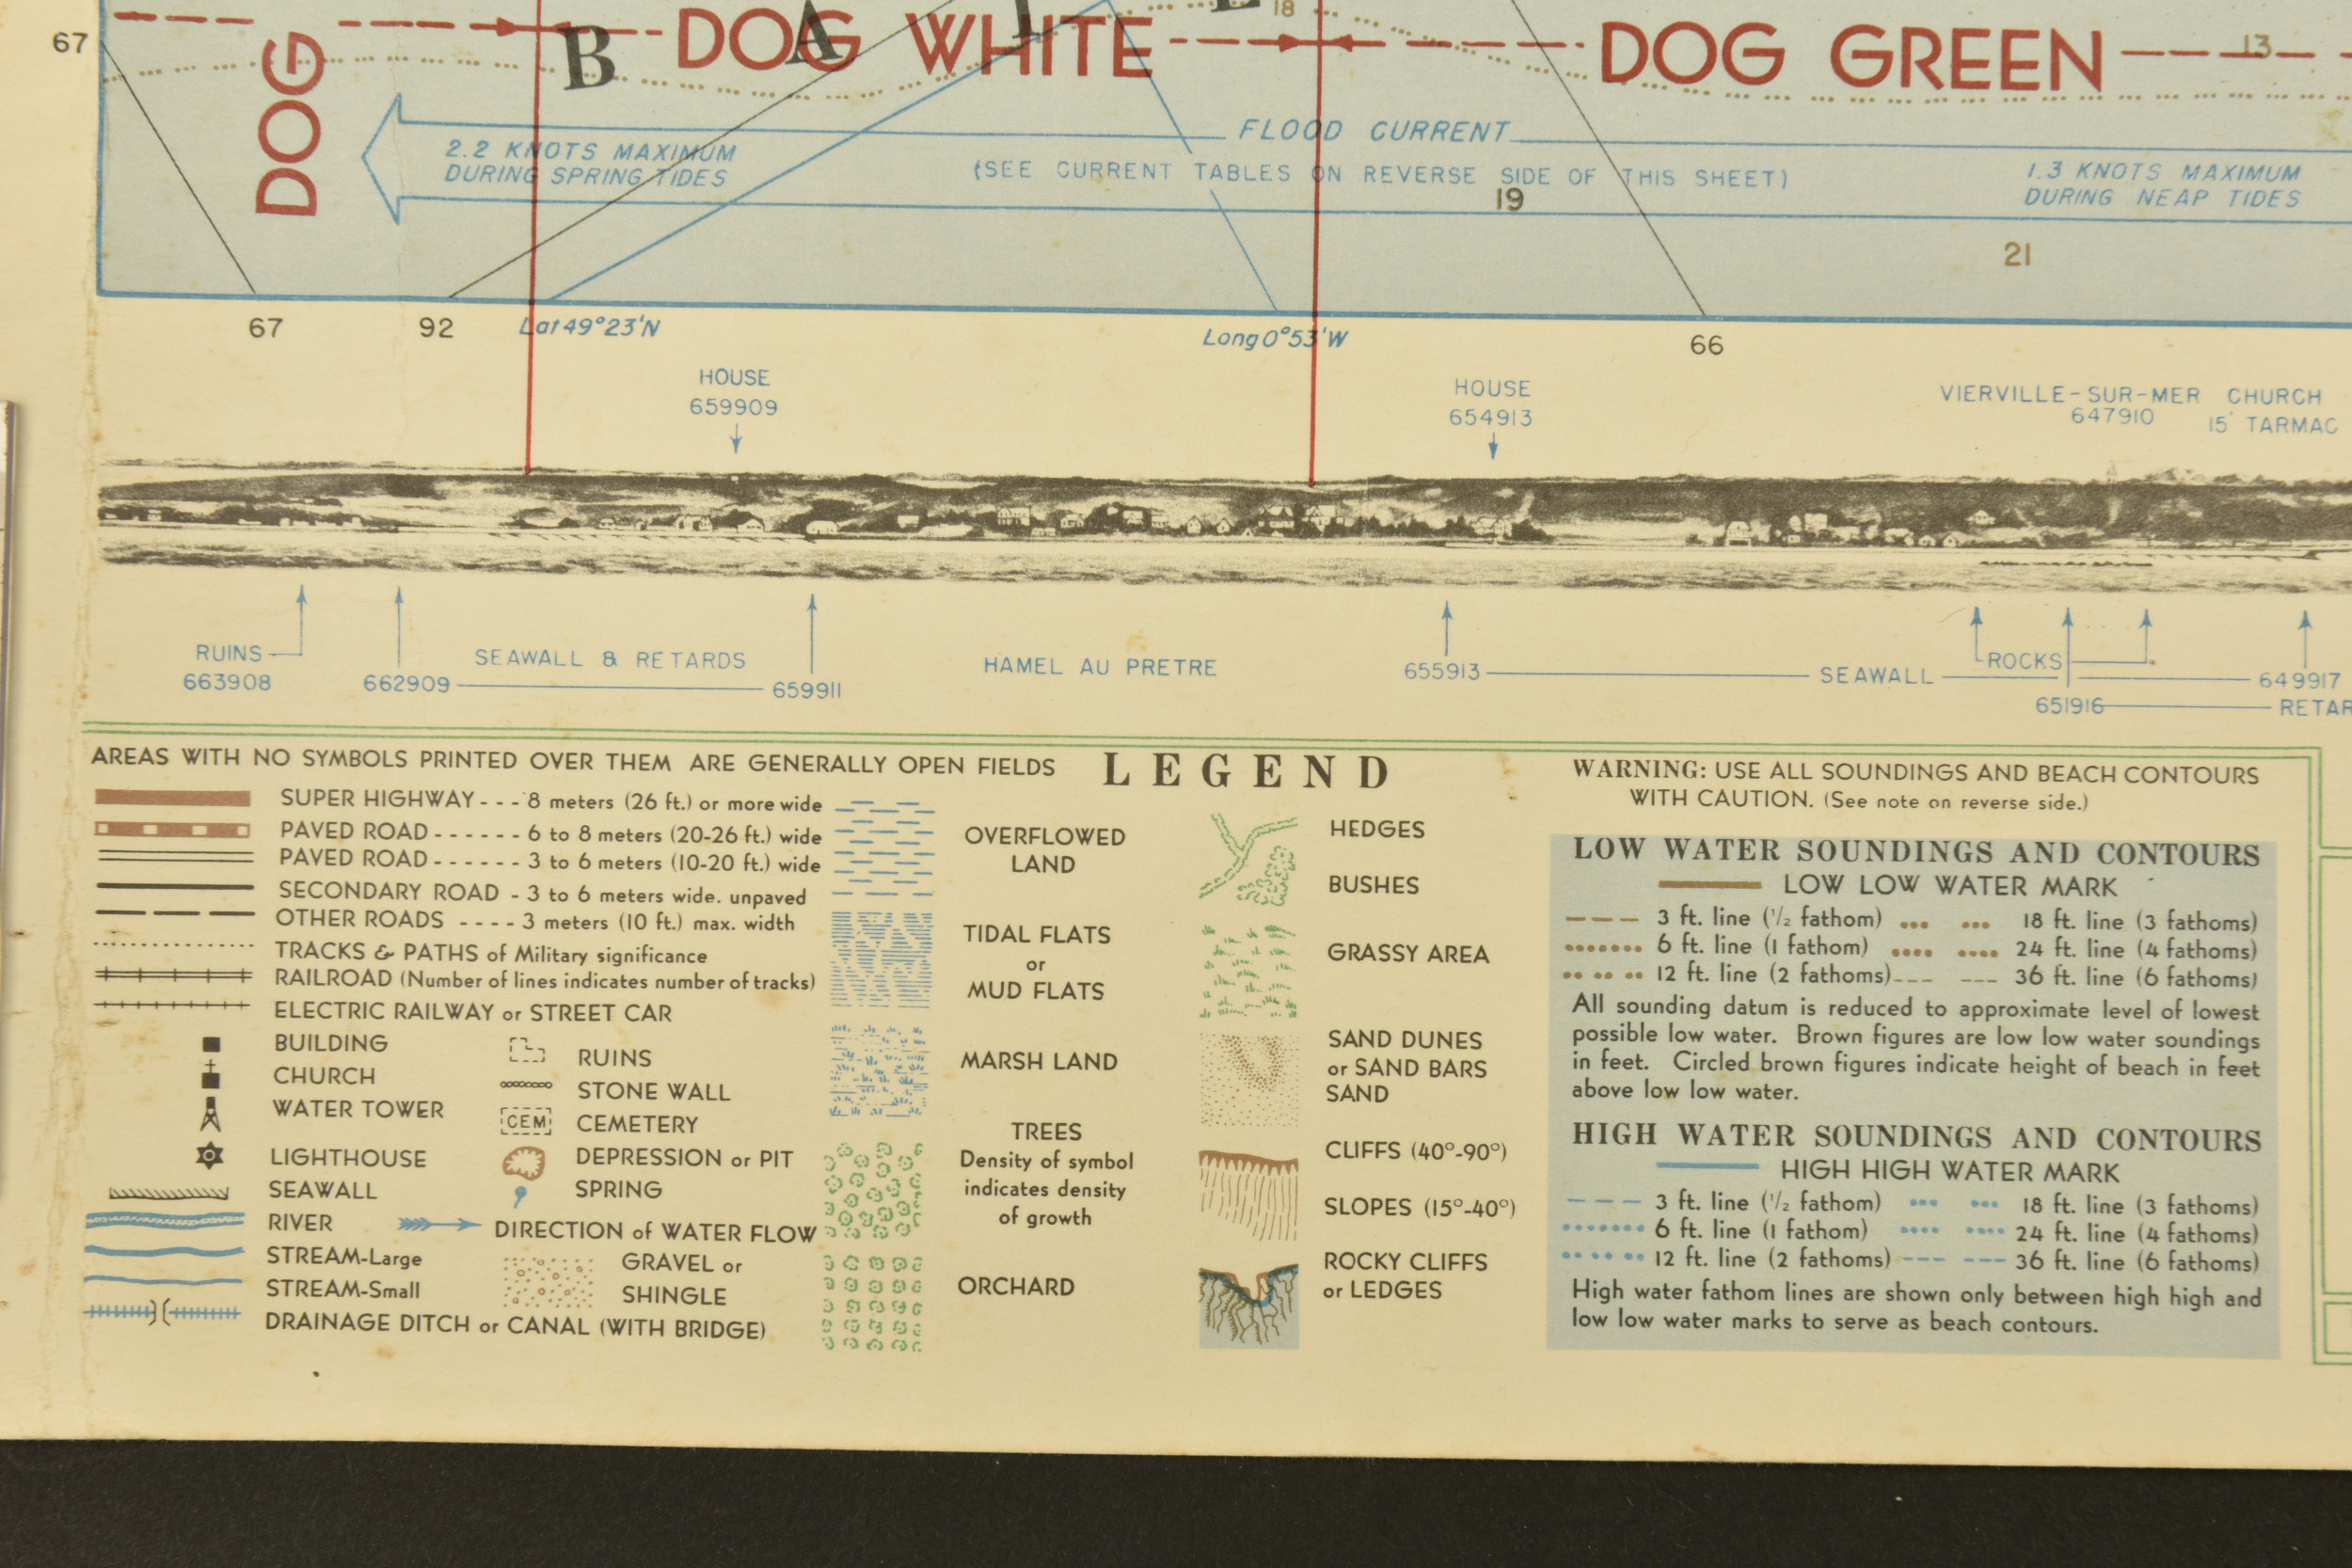 67
DOG
DOG WHITE
DOG GREEN
B A I E
18
13
FLOOD CURRENT
2.2 KNOTS MAXIMUM
DURING SPRING TIDES
(SEE CURRENT TABLES ON REVERSE SIDE OF THIS SHEET)
1.3 KNOTS MAXIMUM
DURING NEAP TIDES
19
21
67
92
Lat 49°23'N
Long 0°53'W
66
HOUSE
659909
HOUSE
654913
VIERVILLE-SUR-MER CHURCH
647910
15' TARMAC
RUINS
663908
662909
SEAWALL & RETARDS
659911
HAMEL AU PRETRE
655913
SEAWALL
ROCKS
651916
649917
RETAR
AREAS WITH NO SYMBOLS PRINTED OVER THEM ARE GENERALLY OPEN FIELDS
LEGEND
SUPER HIGHWAY - - - 8 meters (26 ft.) or more wide
PAVED ROAD - - - - - - 6 to 8 meters (20-26 ft.) wide
PAVED ROAD - - - - - - 3 to 6 meters (10-20 ft.) wide
SECONDARY ROAD - 3 to 6 meters wide. unpaved
OTHER ROADS - - - - 3 meters (10 ft.) max. width
TRACKS & PATHS of Military significance
RAILROAD (Number of lines indicates number of tracks)
ELECTRIC RAILWAY or STREET CAR
BUILDING
CHURCH
WATER TOWER
LIGHTHOUSE
SEAWALL
RIVER
STREAM-Large
STREAM-Small
DRAINAGE DITCH or CANAL (WITH BRIDGE)
RUINS
STONE WALL
CEM
CEMETERY
DEPRESSION or PIT
SPRING
DIRECTION of WATER FLOW
GRAVEL or
SHINGLE
OVERFLOWED
LAND
TIDAL FLATS
or
MUD FLATS
MARSH LAND
TREES
Density of symbol
indicates density
of growth
ORCHARD
HEDGES
BUSHES
GRASSY AREA
SAND DUNES
or SAND BARS
SAND
CLIFFS (40°-90°)
SLOPES (15°-40°)
ROCKY CLIFFS
or LEDGES
WARNING: USE ALL SOUNDINGS AND BEACH CONTOURS
WITH CAUTION. (See note on reverse side.)
LOW WATER SOUNDINGS AND CONTOURS
LOW LOW WATER MARK
3 ft. line (1/2 fathom) 18 ft. line (3 fathoms)
6 ft. line (1 fathom) 24 ft. line (4 fathoms)
12 ft. line (2 fathoms) 36 ft. line (6 fathoms)
All sounding datum is reduced to approximate level of lowest
possible low water. Brown figures are low low water soundings
in feet. Circled brown figures indicate height of beach in feet
above low low water.
HIGH WATER SOUNDINGS AND CONTOURS
HIGH HIGH WATER MARK
3 ft. line (1/2 fathom) 18 ft. line (3 fathoms)
6 ft. line (1 fathom) 24 ft. line (4 fathoms)
12 ft. line (2 fathoms) 36 ft. line (6 fathoms)
High water fathom lines are shown only between high high and
low low water marks to serve as beach contours.